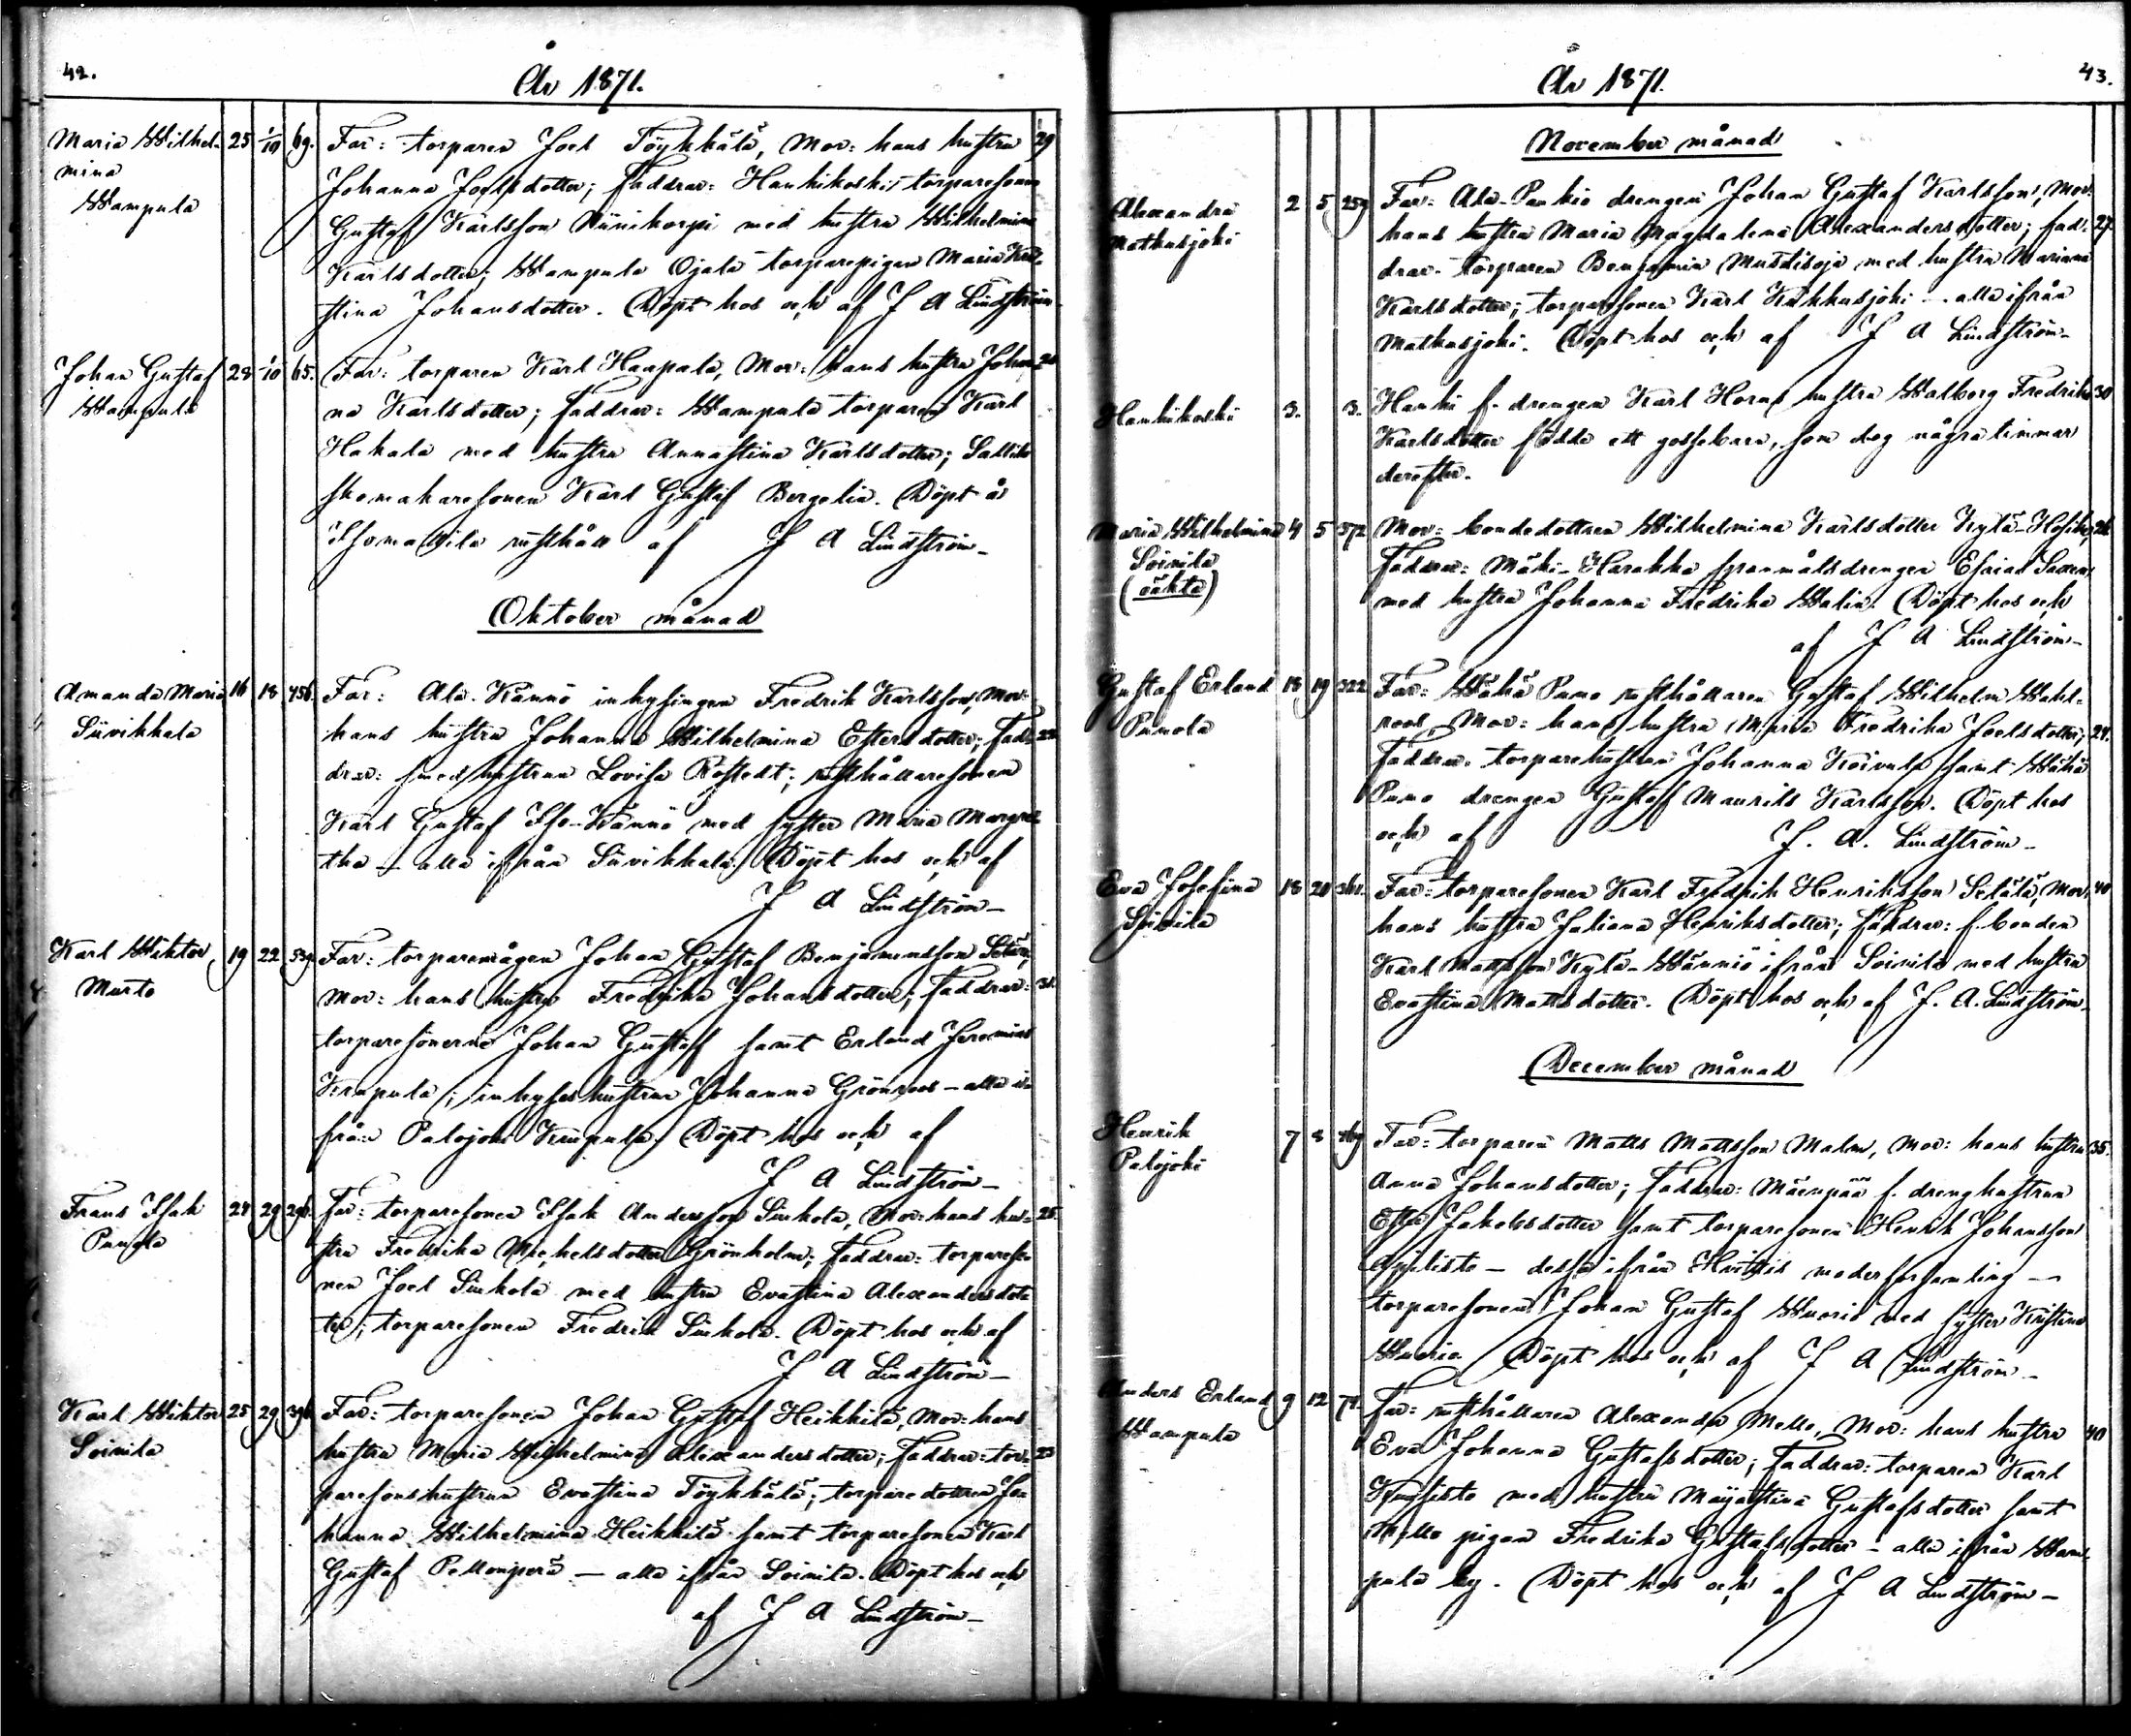 42.
År 1871.
Maria Wilhel- 25 1/10 69. Far: torparen Joel Töykkälä, Mor: hans hustru 29
mina Johanna Joelsdotter; Faddrar: Hankikoski torparesonen
Wampula Gustaf Karlsson Niinikorpi med hustru Wilhelmina
Karlsdotter; Wampula Ojala torparepigan Maria Kri-
stina Johansdotter. Döpt hos och af J A Lindström-
Johan Gustaf 28 1/10 65. Far: torparen Karl Haapala, Mor: hans hustru Johan-
Wampula na Karlsdotter; Faddrar: Wampula torparen Karl
Hakala med hustru Annastina Karlsdotter; Sallila
skomakaresonen Karl Gustaf Bergelin. Döpt å
Isomattila rusthåll af J A Lindström-
Oktober månad
Amanda Maria 16 18 456. Far: Ala-Kännö inhysingen Fredrik Karlsson, Mor:
Siivikkala hans hustru Johanna Wilhelmina Estersdotter; Fad-
drar: smedhustrun Lovisa Rostedt; rusthållaresonen
Karl Gustaf Iso-Kännö med syster Maria Margre-
tha - alla ifrån Siivikkala. Döpt hos och af
J A Lindström-
Karl Wiktor 19 22 539. Far: torparemågen Johan Gustaf Benjaminsson
Murto Mor: hans hustru Fredrika Johansdotter; Faddrar: 31.
torparesönerne Johan Gustaf samt Erland Jeremias
Krapula; inhyseshustrun Johanna Grönroos - alla i-
från Palojoki Krapula. Döpt hos och af
J A Lindström-
Frans Isak 24 29 296. Far: torparesonen Isak Andersson Sinkola, Mor: hans hu- 25.
Punola stru Fredrika Michelsdotter Grönholm; Faddrar: torpareso-
nen Joel Sinkola med hustru Evastina Alexandersdot-
ter; torparesonen Fredrik Sinkola. Döpt hos och af
J A Lindström-
Karl Wiktor 25 29 396. Far: torparesonen Johan Gustaf Heikkilä, Mor: hans
Soinila hustru Maria Wilhelmina Alexandersdotter; Faddrar: tor- 23
paresonshustrun Evastina Töykkälä; torparedottren Jo-
hanna Wilhelmina Heikkilä samt torparesonen Karl
Gustaf Pellonperä - alla ifrån Soinila. Döpt hos och
af J A Lindström-
43.
År 1871.
November månad
Alexandra 2 5 259 Far: Ala-Pankio drengen Johan Gustaf Karlsson, Mor:
Matkusjoki hans hustru Maria Magdalena Alexandersdotter; fad- 27.
drar: torparen Benjamin Mustisoja med hustru Mariana
Karlsdotter; torparesonen Karl Kukkusjoki - alla ifrån
Matkusjoki. Döpt hos och af J A Lindström-
Hankikoski 3. 3. Hanki f. drengen Karl Horns hustru Walborg Fredrika 30
Karlsdotter födde ett gossebarn, som dog några timmar
derefter.
Maria Wilhelmina 4 5 372 Mor: bondedottren Wilhelmina Karlsdotter Kylä-
Soinila Faddrar: Mäki-Harakka spannmålsdrengen Esaias
(oäkta) med hustru Johanna Fredrika Walin. Döpt hos och
af J A Lindström-
Gustaf Erland 18 19 322 Far: Wähä Puno rusthållaren Gustaf Wilhelm Wahl-
Punola roos, Mor: hans hustru Maria Fredrika Joelsdotter; 24.
Faddrar: torparehustrun Johanna Koivula samt Wähä
Puno drengen Gustaf Maurits Karlsson. Döpt hos
och af J. A. Lindström-
Eva Josefina 18 20 361. Far: torparesonen Karl Fredrik Henriksson Setälä, Mor: 40
Soinila hans hustru Juliana Henriksdotter; faddrar: f. bonden
Karl Mattsson Kylä-Wänniö ifrån Soinila med hustru
Evastina Mattsdotter. Döpt hos och af J. A. Lindström-
December månad
Henrik 7 8 Far: torparen Matts Mattsson Malm, Mor: hans hustru 35.
Palojoki Anna Johansdotter; Faddrar: Mäenpää f. drenghustrun
Ester Jakobsdotter samt torparesonen Henrik Johansson
- dessa ifrån Hvittis moderförsamling -
torparesonen Johan Gustaf Wuorio med syster Kristina
Wuorio. Döpt hos och af J A Lindström-
Anders Erland 9 12 74. Far: rusthållaren Alexander Mello, Mor: hans hustru 40
Wampula Eva Johanna Gustafsdotter; Faddrar: torparen Karl
med hustru Majastina Gustafsdotter samt
Mello pigan Fredrika Gustafsdotter - alla ifrån Wam-
pula by. Döpt hos och af J A Lindström-